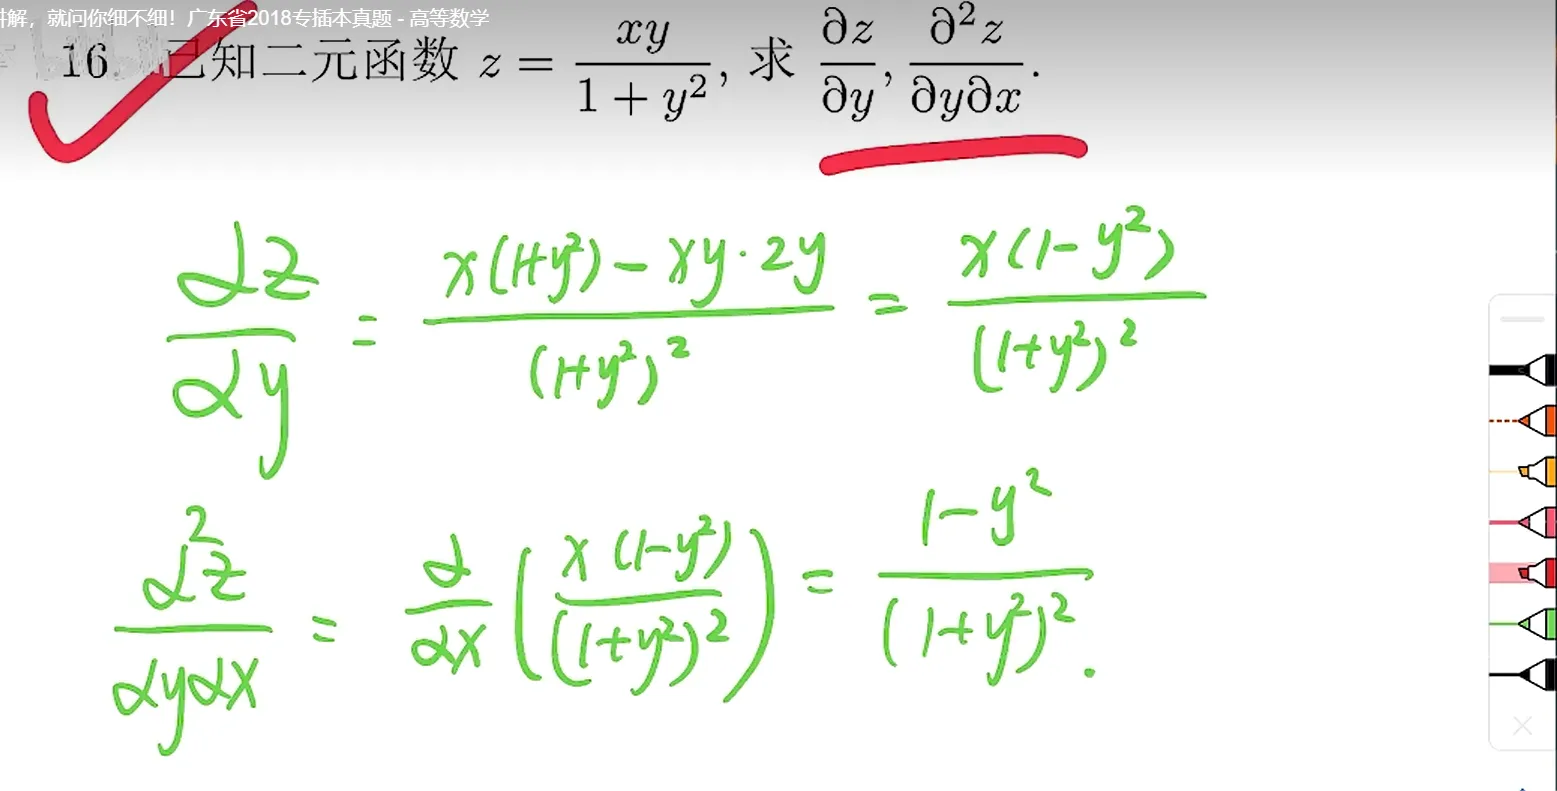 讲解，就问你细不细！广东省2018专插本真题 - 高等数学
16. 已知二元函数 z = \frac{xy}{1+y^2}, 求 \frac{∂z}{∂y}, \frac{∂^2 z}{∂y∂x}.
\frac{∂z}{∂y} = \frac{x(1+y^2) - xy·2y}{(1+y^2)^2} = \frac{x(1-y^2)}{(1+y^2)^2}
\frac{∂^2 z}{∂y∂x} = \frac{∂}{∂x} ( \frac{x(1-y^2)}{(1+y^2)^2} ) = \frac{1-y^2}{(1+y^2)^2}.